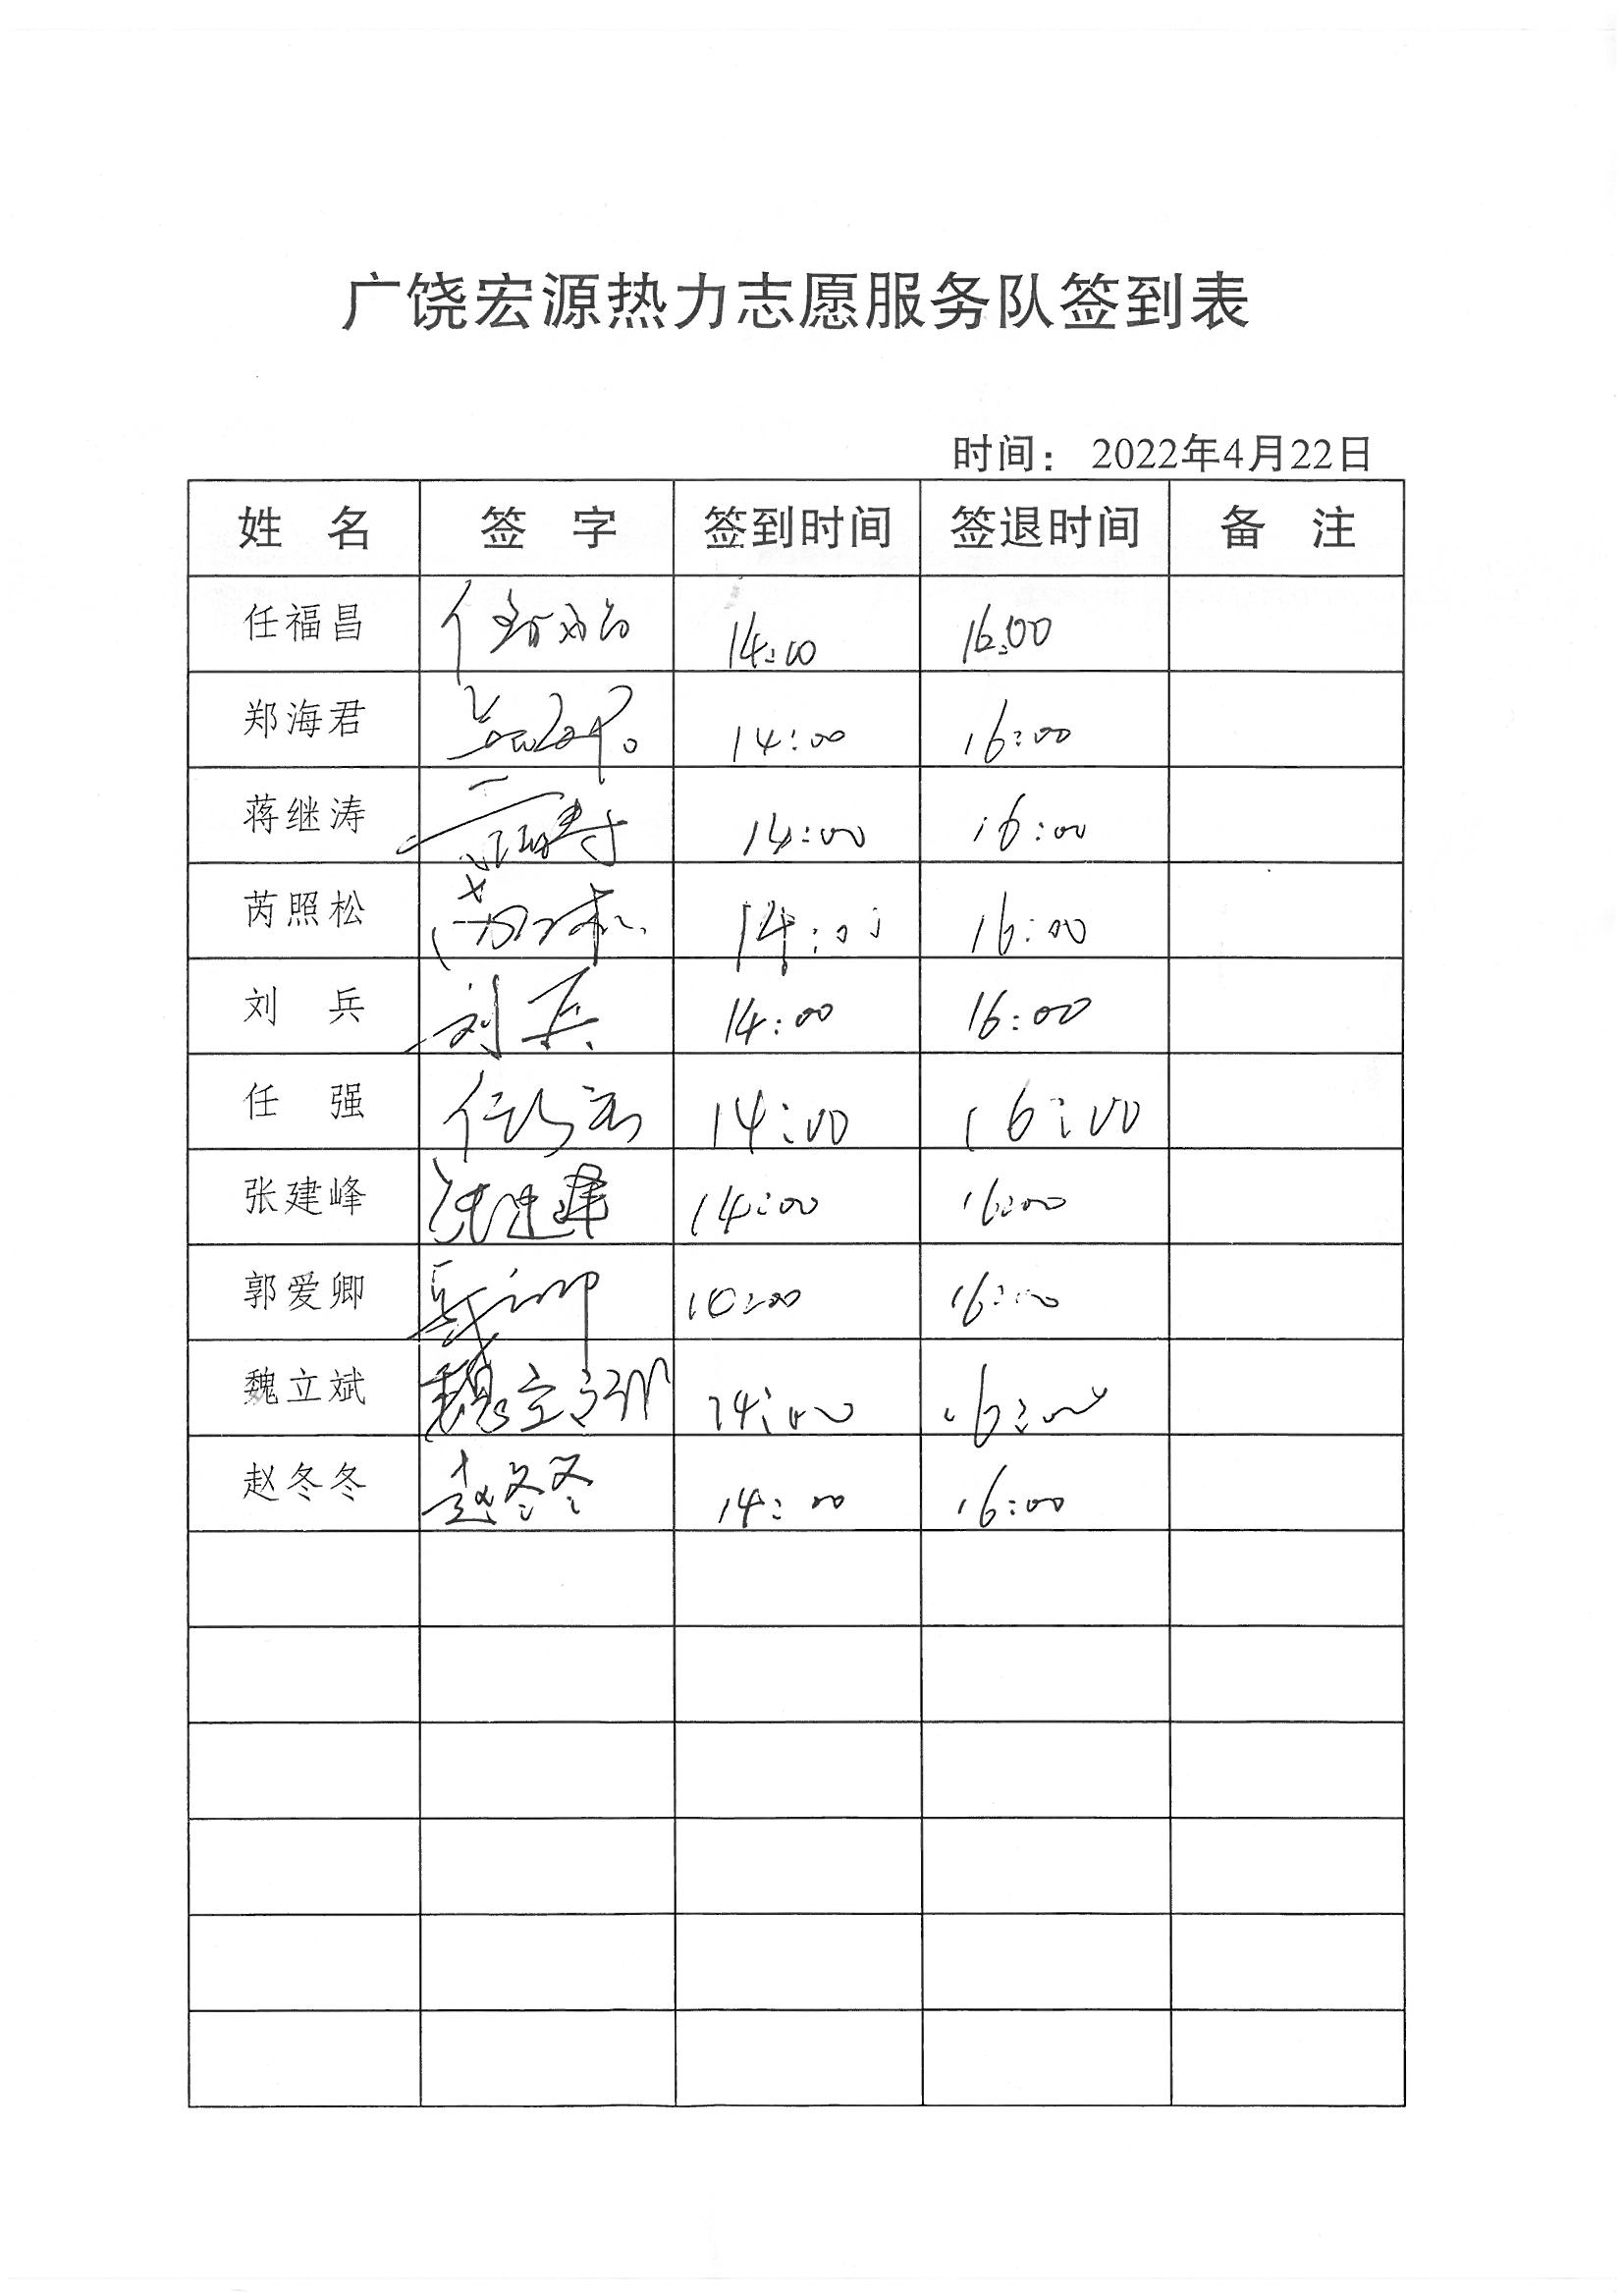 广饶宏源热力志愿服务队签到表
时间： 2022年4月22日
姓 名 签 字 签到时间 签退时间 备 注
任福昌 14:00 16:00
郑海君 14:00 16:00
蒋继涛 14:00 16:00
芮照松 14:00 16:00
刘 兵 刘兵 14:00 16:00
任 强 14:00 16:00
张建峰 14:00 16:00
郭爱卿 16:00
魏立斌 魏立斌 14:00 16:00
赵冬冬 赵冬冬 14:00 16:00